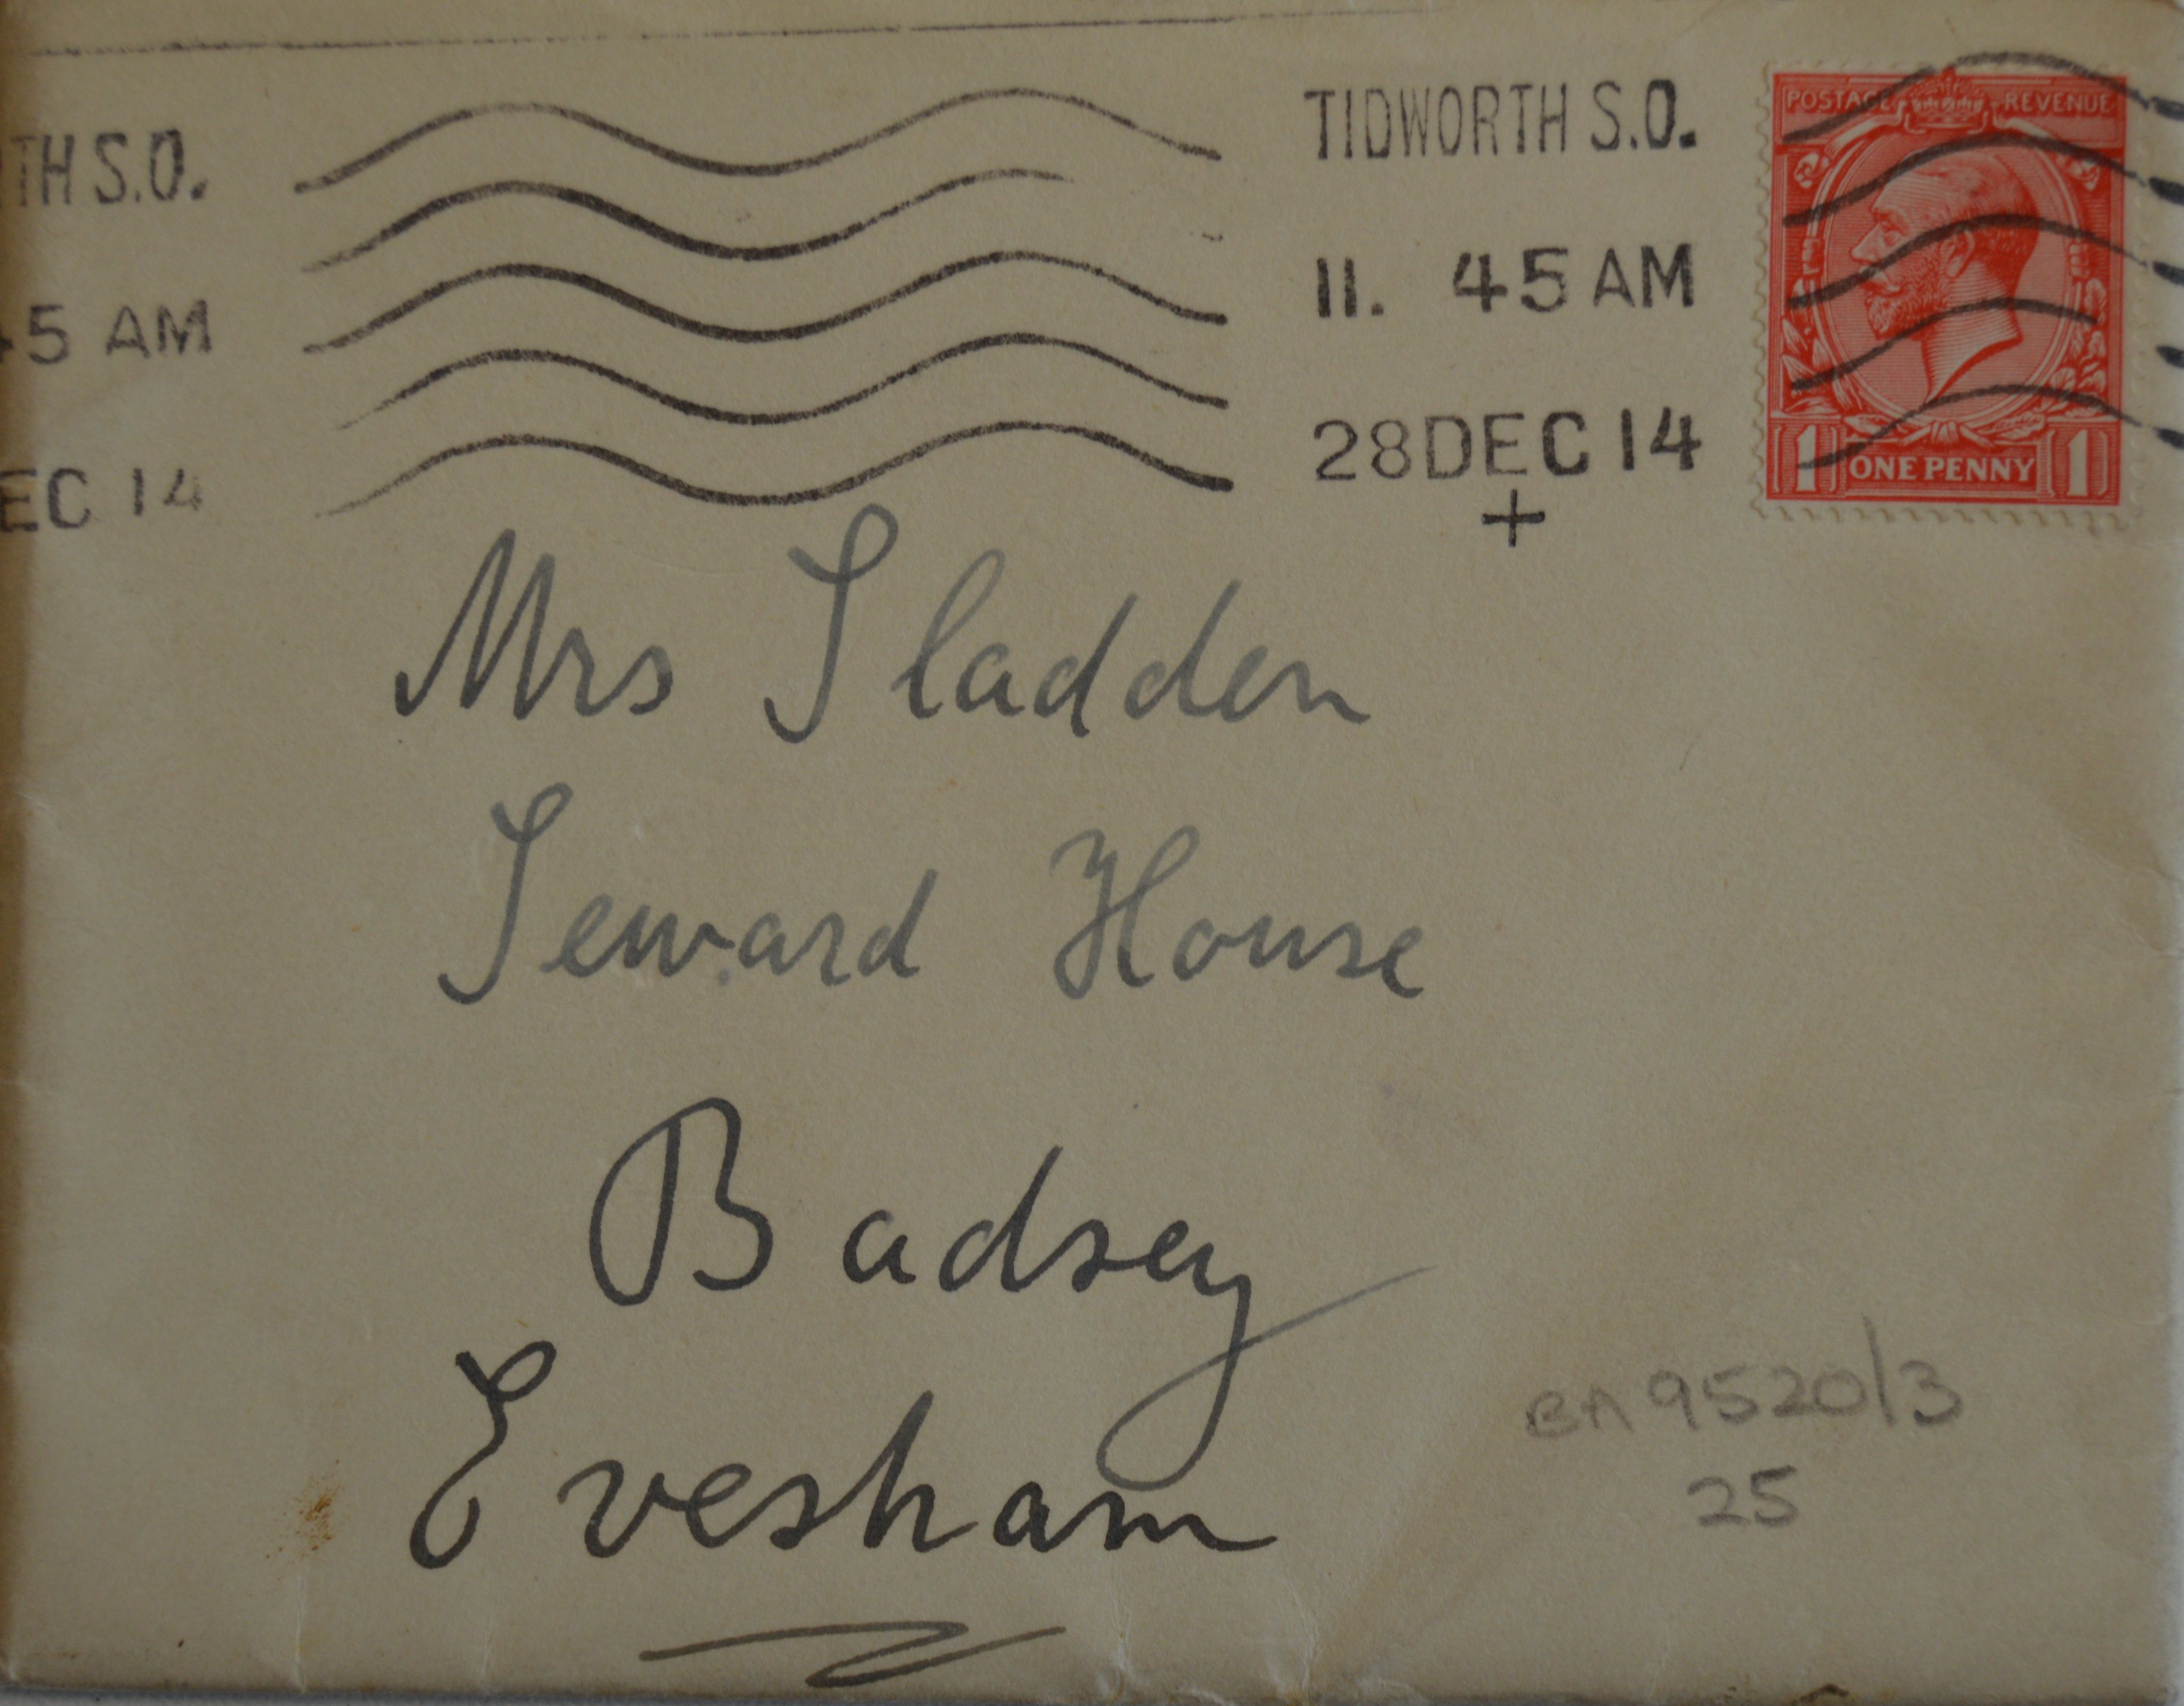 TH S.O.
5 AM
EC 14
TIDWORTH S.O.
11. 45 AM
28 DEC 14
POSTAGE REVENUE
1 ONE PENNY 1
Mrs Sladden
Seward House
Badsey
Evesham
BA 9520/3
25